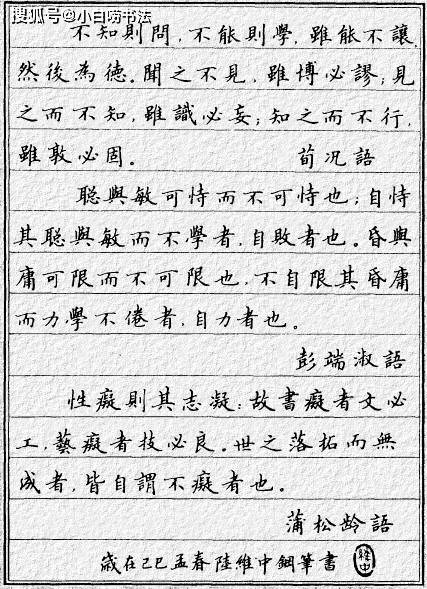 搜狐号@小白唠书法
不知則問，不能則學，雖能不讓，
然後為德。聞之不見，雖博必謬；見
之而不知，雖識必妄；知之而不行，
雖敦必困。
荀况語
聪與敏可恃而不可恃也；自恃
其聪與敏而不學者，自敗者也。昏與
庸可限而不可限也，不自限其昏庸
而力學不倦者，自力者也。
彭端淑語
性癡則其志凝：故書癡者文必
工，藝癡者技必良。世之落拓而無
成者，皆自謂不癡者也。
蒲松龄語
歲在己巳孟春陸維中鋼筆書
維中